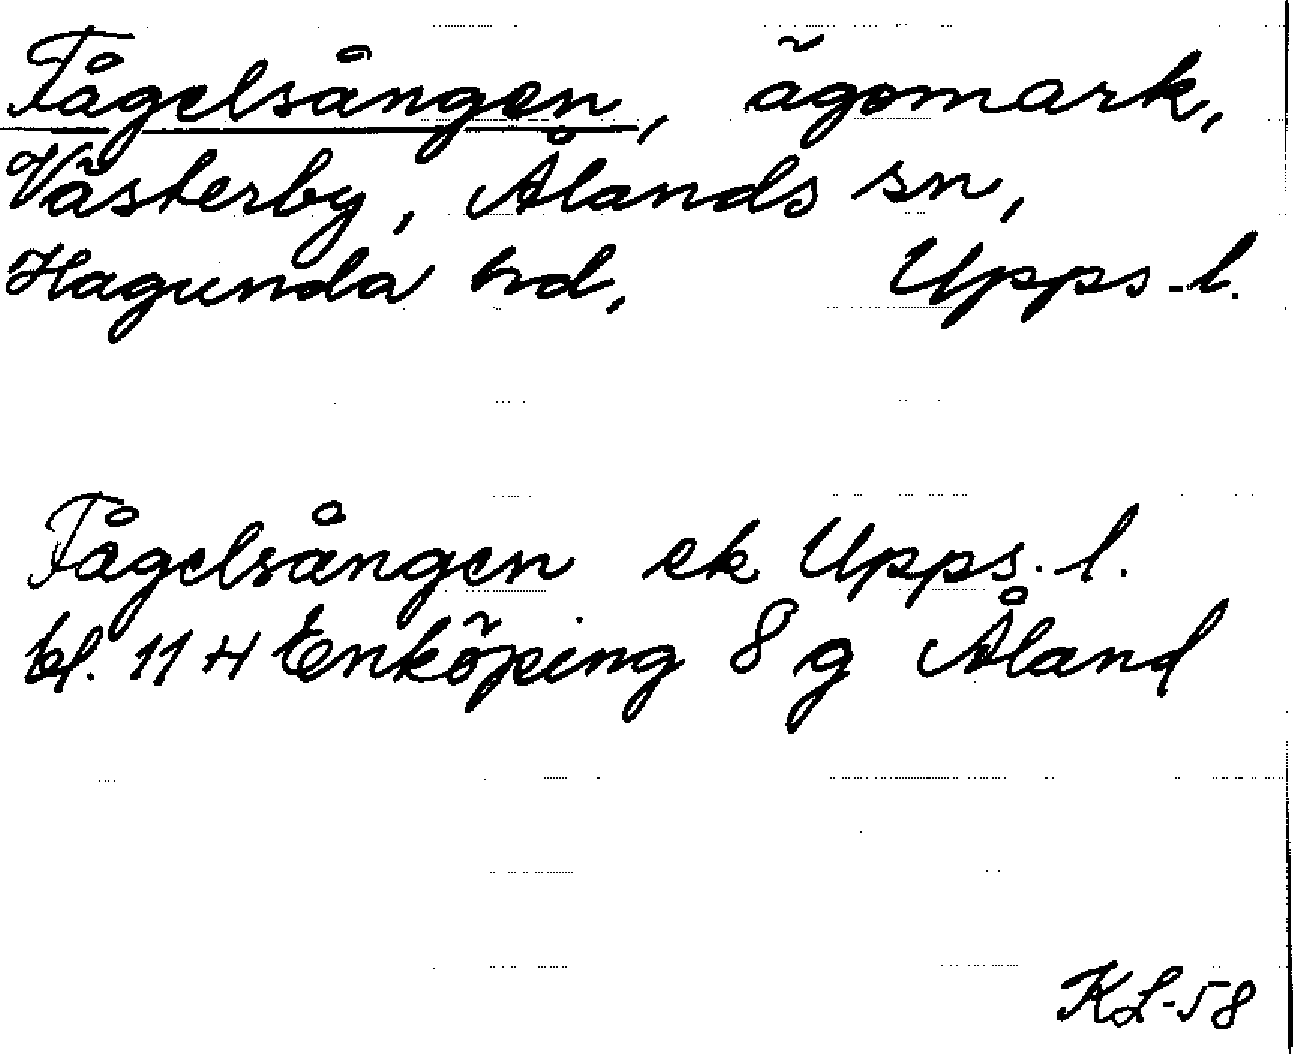 Fågelsången, ägomark,
Västerby, Ålands sn,
Hagunda hd, Upps.l.
Fågelsången ek Upps.l.
bl. 11 H Enköping 8 g Åland
KL-58